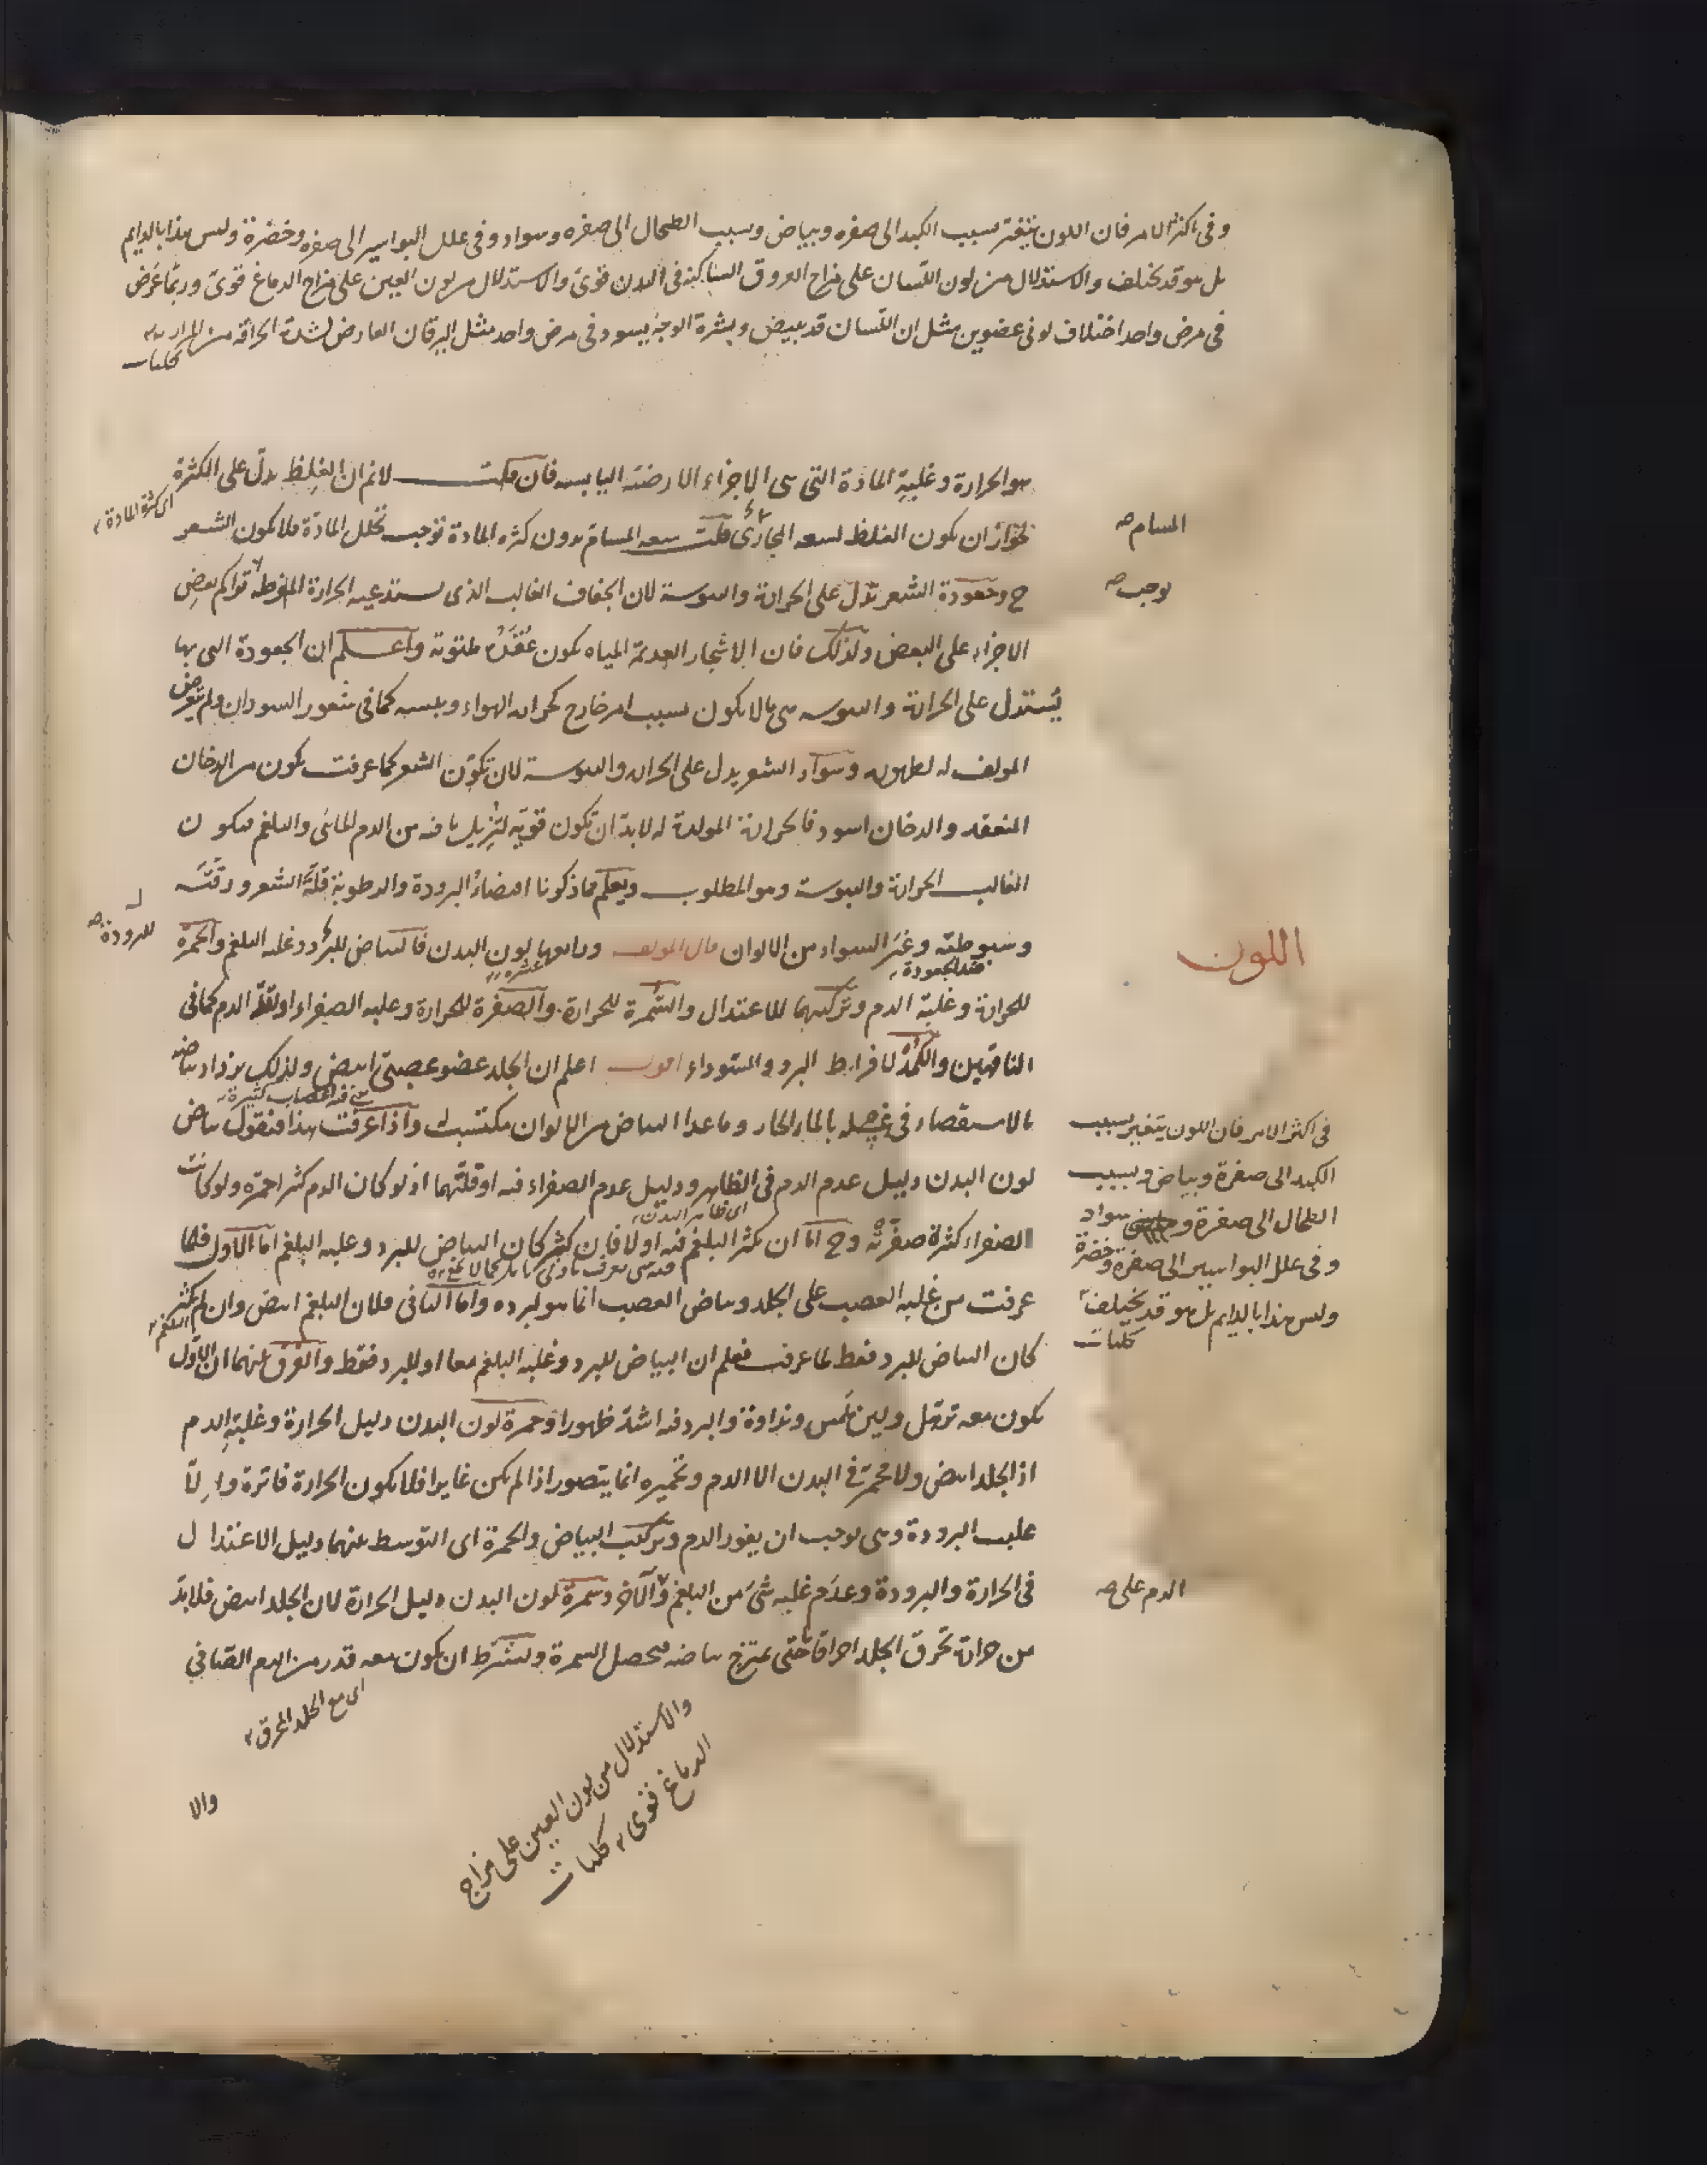 وفى اكثر الامر فان اللون يتغير بسبب الكبد الى صفره وبياض وبسبب الطحال الى صفره وسواد وفى علل البواسير الى صفره وخضرة وليس هذا بالدايم
بل هو قد يختلف والاستدلال من لون اللسان على مزاج العروق الساكنه فى البدن قوى والاستدلال من لون العين على مزاج الدماغ قوى وربما عرض
فى مرض واحد اختلاف لونى عضوين مثل ان اللسان قد يبيض وبشرة الوجه يسود فى مرض واحد مثل اليرقان العارض لشدة الحراقه من المرار
كليات
هو الحرارة وغلبة المادة التى هى الاجزاء الارضية اليابسه فان قلت لانم ان الغلظ يدل على الكثرة
اى كثرة المادة
لجواز ان يكون الغلظ لسعه المجارى قلت سعه المسام بدون كثره المادة توجب تخلل المادة فلا يكون الشعر
المسام صح
ح وجعودة الشعر تدل على الحرارة واليبوسة لان الجفاف الغالب الذى يستدعيه الحرارة المفرطة تراكم بعض
يوجب صح
الاجزاء على البعض ولذلك فان الاشجار العديمة المياه يكون عقده ملتوية واعلم ان الجعودة التى بها
يستدل على الحرارة واليبوسه هى ما لا يكون بسبب امر خارج كحراره الهواء ويبسه كما فى شعور السودان ولم يتعرض
المولف له لظهوره وسواد الشعر يدل على الحراره واليبوسة لان تكون الشعر كما عرفت يكون من الدخان
المنعقد والدخان اسود فالحرارة المولدة له لابد ان تكون قوية لتزيل ما فيه من الدم المائى والبلغم فيكون
الغالب الحرارة واليبوسة وهو المطلوب ويعلم مما ذكرنا اقتضاء البرودة والرطوبة قلة الشعر ورقته
وسبوطته وغير السواد من الالوان قال المولف ورابعها لون البدن فالبياض للبرد وغلبه البلغم والحمرة
ضد الجعودة
للبرودة صح
اللون
للحرارة وغلبة الدم وتركيبهما للاعتدال والسمرة للحرارة والصفرة للحرارة وغلبه الصفراء او لقلة الدم كما فى
الناقهين والكمدة لافراط البرد والسوداء اقول اعلم ان الجلد عضو عصبى ابيض ولذلك يزداد بياضه
بالاستقصاء فى غسله بالماء الحار وما عدا البياض من الالوان مكتسبة واذا عرفت هذا فنقول بياض
لون البدن دليل عدم الدم فى الظاهر ودليل عدم الصفراء فيه او قلتهما اذ لو كان الدم كثر احمره ولو كانت
اى ظاهر البدن
الصفراء كثرة صفرته وح اما ان يكثر البلغم فيه او لا فان كثر كان البياض للبرد وغلبه البلغم اما الاول فلما
عرفت من غلبه العصب على الجلد وبياض العصب انما هو لبرده واما الثانى فلان البلغم ابيض وان لم يكثر
البلغم
كان البياض للبرد فقط لما عرفت فعلم ان البياض للبرد وغلبه البلغم معا او للبرد فقط والفرق بينهما ان الاول
يكون معه ترهل ولين لمس ونداوة والبرد فيه اشد ظهورا وحمرة لون البدن دليل الحرارة وغلبة الدم
اذ الجلد ابيض ولا محمر فى البدن الا الدم وتحميره انما يتصور اذا لم يكن غايرا فلا يكون الحرارة فاترة والا
غلبت البرودة وهى توجب ان يغور الدم وتركيب البياض والحمرة اى التوسط بينهما دليل الاعتدال
فى الحرارة والبرودة وعدم غلبه شئ من البلغم والآخر وسمرة لون البدن دليل الحرارة لان الجلد ابيض فلابد
الدم على صح
من حرارة تحرق الجلد احراقا حتى يمتزج بياضه فيحصل السمرة ويشترط ان يكون معه قدر من الدم الصافي
اى مع الجلد المحرق
فى اكثر الامر فان اللون يتغير بسبب
الكبد الى صفرة وبياض وبسبب
الطحال الى صفرة و سواد
وفى علل البواسير الى صفرة وخضرة
وليس هذا بالدايم بل هو قد يختلف
كليات
والاستدلال من لون العين على مزاج
الدماغ قوى كليات
والا